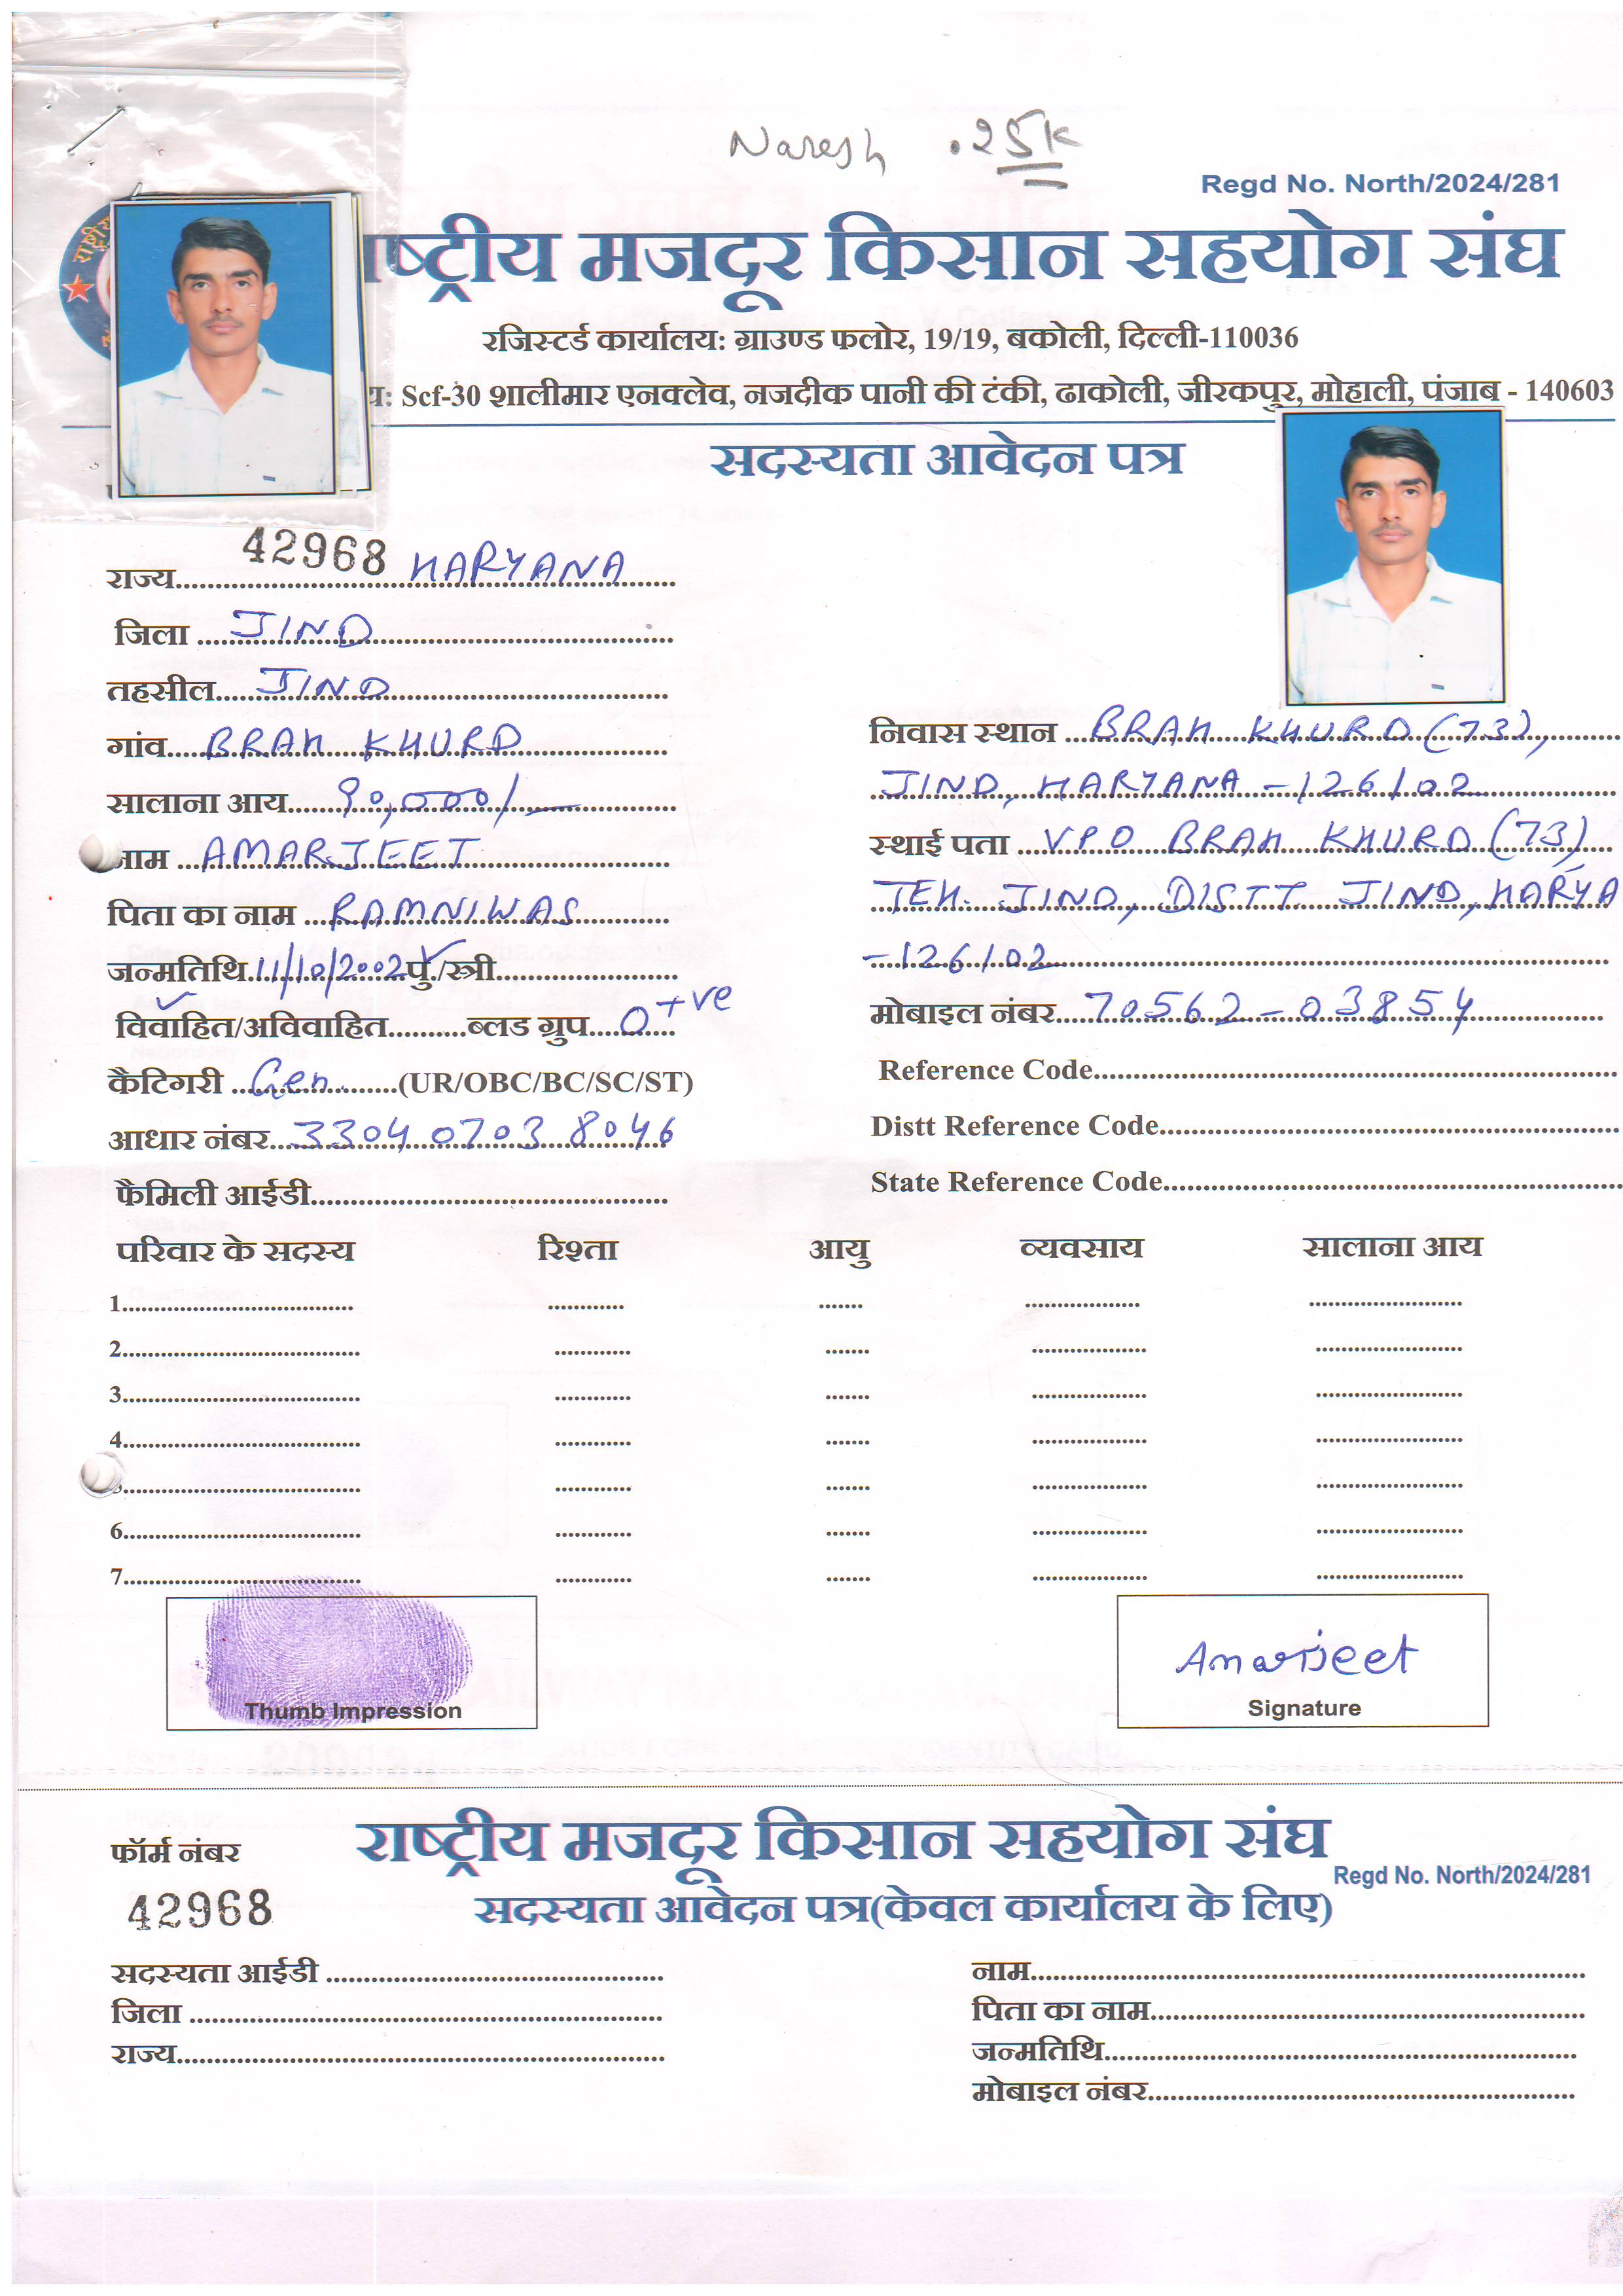 Naresh .25K
Regd No. North/2024/281
राष्ट्रीय मजदूर किसान सहयोग संघ
रजिस्टर्ड कार्यालय: ग्राउण्ड फलोर, 19/19, बकोली, दिल्ली-110036
य: Scf-30 शालीमार एनक्लेव, नजदीक पानी की टंकी, ढाकोली, जीरकपुर, मोहाली, पंजाब - 140603
सदस्यता आवेदन पत्र
42968
राज्य HARYANA
जिला JIND
तहसील JIND
गांव BRAH KHURD
सालाना आय 90,000/-
नाम AMARJEET
पिता का नाम RAMNIWAS
जन्मतिथि 11/10/2002 पु/स्त्री
विवाहित/अविवाहित ब्लड ग्रुप O+ve
कैटिगरी Gen (UR/OBC/BC/SC/ST)
आधार नंबर 3304 0703 8046
फैमिली आईडी
निवास स्थान BRAH KHURD (73),
JIND, HARYANA -126102
स्थाई पता VPO BRAH KHURD (73)
TEH. JIND, DISTT JIND, HARYA
-126102
मोबाइल नंबर 70562-03854
Reference Code
Distt Reference Code
State Reference Code
परिवार के सदस्य रिश्ता आयु व्यवसाय सालाना आय
1
2
3
4
5
6
7
Thumb Impression
Amarjeet
Signature
फॉर्म नंबर
42968
राष्ट्रीय मजदूर किसान सहयोग संघ
Regd No. North/2024/281
सदस्यता आवेदन पत्र(केवल कार्यालय के लिए)
सदस्यता आईडी
जिला
राज्य
नाम
पिता का नाम
जन्मतिथि
मोबाइल नंबर